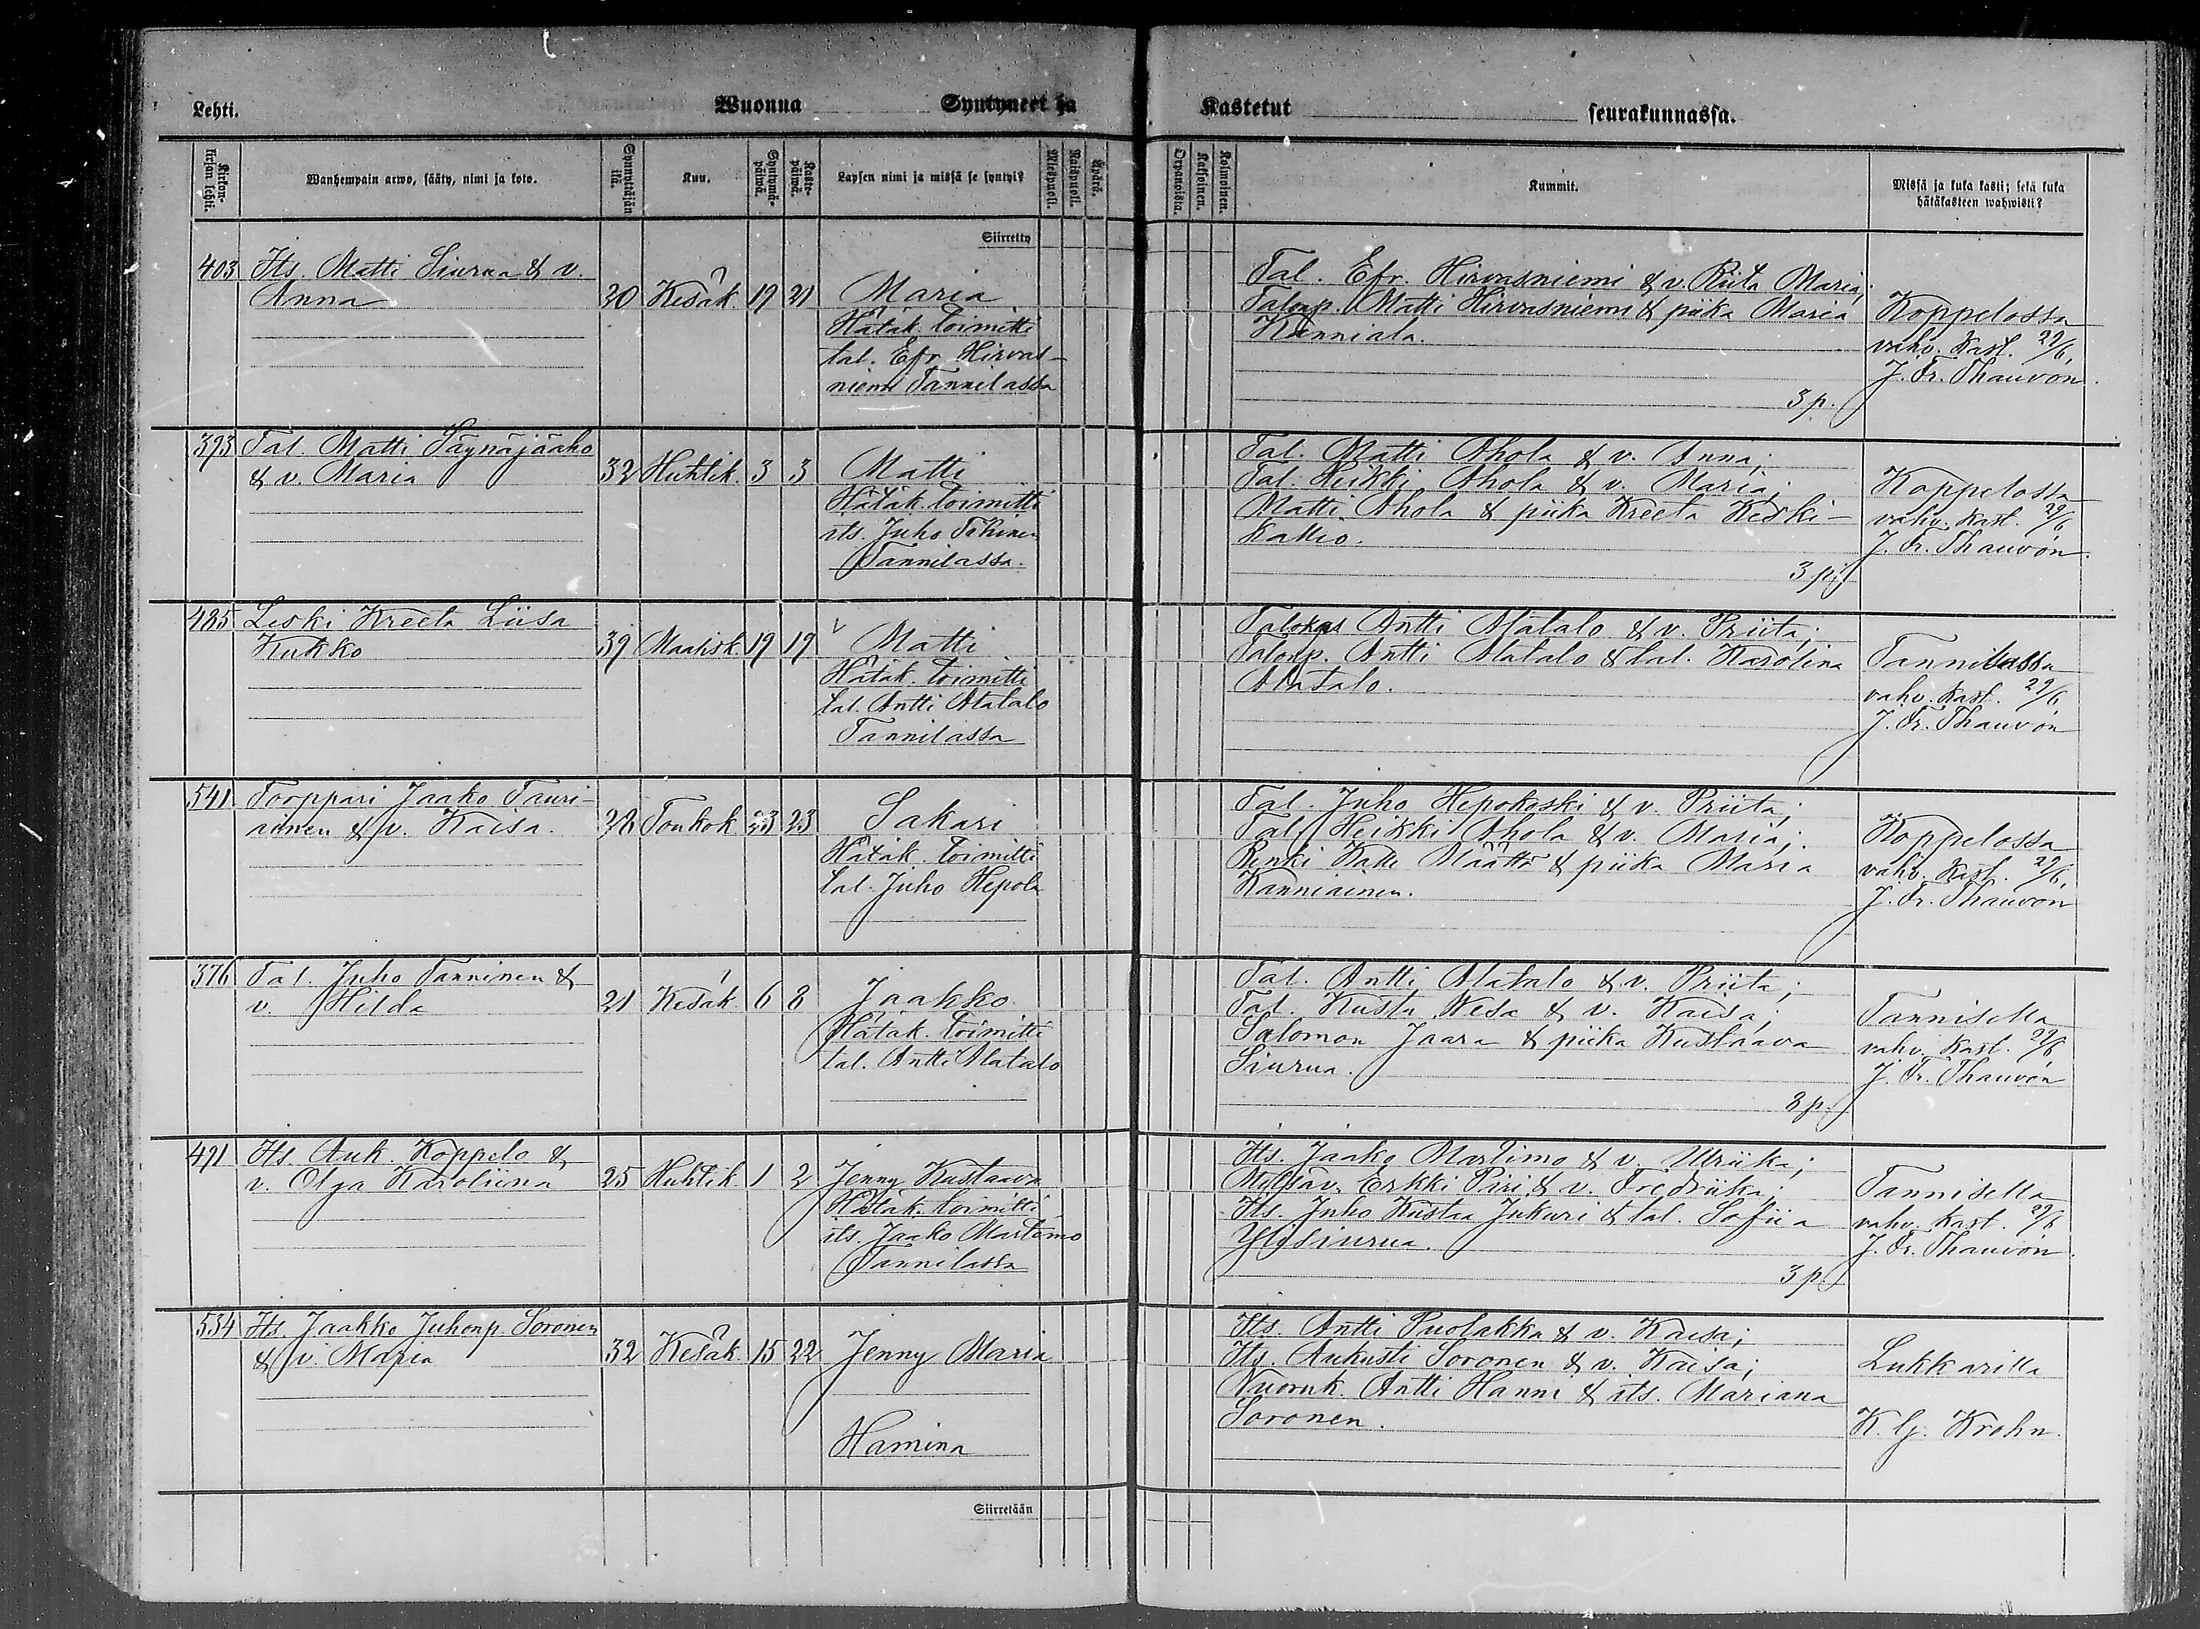 Lehti. Wuonna Syntyneet ja Kastetut seurakunnassa.
Kirkon-kirjan lehti. Wanhempain arwo, sääty, nimi ja koto. Synnyttäjän ikä. Kuu. Syntymä-päiwä. Kaste-päiwä. Lapsen nimi ja missä se syntyi? Miespuoli. Naispuoli. Äpärä. Orpanoista. Kaksoinen. Kolmoinen. Kummit. Missä ja kuka kasti; sekä kuka hätäkasteen wahwisti?
Siirretty
403 Its. Matti Siurua & v.
Anna 20 Kesäk. 19 21 Maria
Hätäk. toimitti
tal. Efr. Hirvas-
niemi Tannilassa
Tal. Efr. Hirvasniemi & v. Riita Maria;
Talonp. Matti Hirvasniemi & piika Maria
Kanniala.
3 p.
Koppelossa
vahv. kast. 29/6.
J. Fr. Thauvón.
393 Tal. Matti Säynäjäaho
& v. Maria 32 Huhtik. 3 3 Matti
Hätäk. toimitti
its. Juho
Tannilassa.
Tal. Matti Ahola & v. Anna;
Tal. Heikki Ahola & v. Maria;
Matti Ahola & piika Kreeta Keski-
kallio.
3 p.
Koppelossa
vahv. kast. 29/6
J. Fr. Thauvón.
485 Leski Kreeta Liisa
Kukko 39 Maalisk. 19 19 Matti
Hätäk. toimitti
tal. Antti Alatalo
Tannilassa
Talokas Antti Alatalo & v. Priita;
Talonp. Antti Alatalo & tal. Karolina
Alatalo.
Tannilassa
vahv. kast. 29/6
J. Fr. Thauvón
541 Torppari Jaako Tauri-
ainen & v. Kaisa. 28 Toukok 23 23 Sakari
Hätäk. toimitti
tal. Juho Hepola
Tal. Juho Hepokoski & v. Priita;
Tal. Heikki Ahola & v. Maria;
Renki Kalle Määttä & piika Maria
Kanniainen.
Koppelossa
vahv. kast. 29/6.
J. Fr. Thauvón
376 Tal. Juho Tanninen &
v. Hilda 21 Kesäk. 6 8 Jaakko
Hätäk. toimitti
tal. Antti Alatalo
Tal. Antti Alatalo & v. Priita;
Tal. Kusta Wesa & v. Kaisa;
Salomon Jaara & piika Kustaava
Siurua.
3 p.
Tannisella
vahv. kast. 29/6
J. Fr. Thauvón
491 Its. Auk. Koppelo &
v. Olga Karoliina 25 Huhtik. 1 2 Jenny Kustaava
Hätäk. toimitti
its. Jaako Martimo
Tannilassa
Its. Jaako Martimo & v. Ulriika;
Erkki Piri & v. Fredriika;
Its. Juho Kustaa Jukuri & tal. Sofiia
Ylisiurua.
3 p.
Tannisella
vahv. kast. 29/6
J. Fr. Thauvón.
534 Its. Jaakko Juhonp. Soronen
& v. Maria 32 Kesäk. 15 22 Jenny Maria
Hamina
Its. Antti Puolakka & v. Kaisa;
Its. Aukusti Soronen & v. Kaisa;
Nuoruk. Antti Hannu & its. Mariana
Soronen.
Lukkarilla
K. Hj. Krohn.
Siirretään